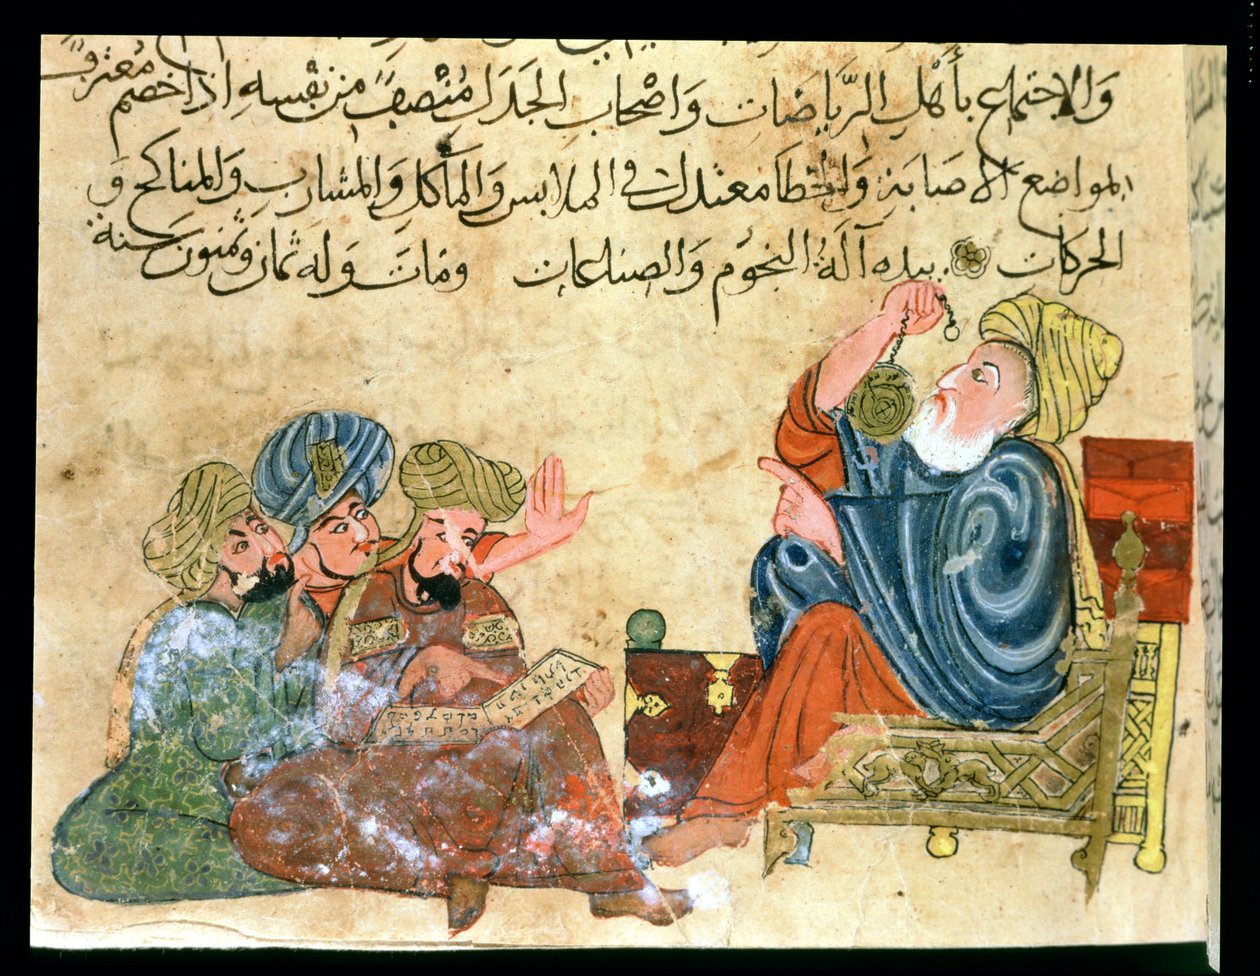 وَالاِجتماع بأَهْلِ الرِّيَاضَات وَاصْحابِ الجَدَل مُنْصِفًا من نفْسِهِ اذا خصم مُعْترفًا
المواضع الاصَابَةِ وَالخطَا معتدل فى الملابس وَالمأكلِ وَالمشارب وَالمناكح وَ
الحركات بيده آلَةُ النجُوم وَالصناعات ومَاتَ وَله ثمان وثمنون سَنة